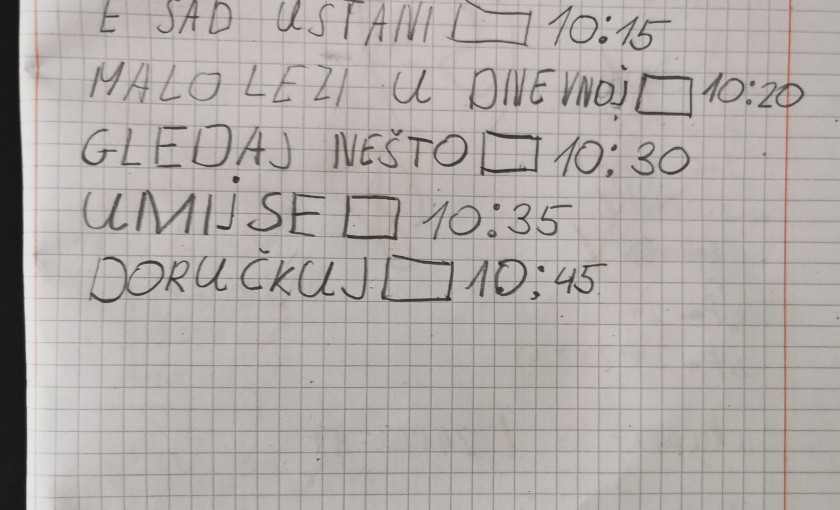 E SAD USTANI 10:15
MALO LEŽI U DNEVNOJ 10:20
GLEDAJ NEŠTO 10:30
UMIJ SE 10:35
DORUČKUJ 10:45